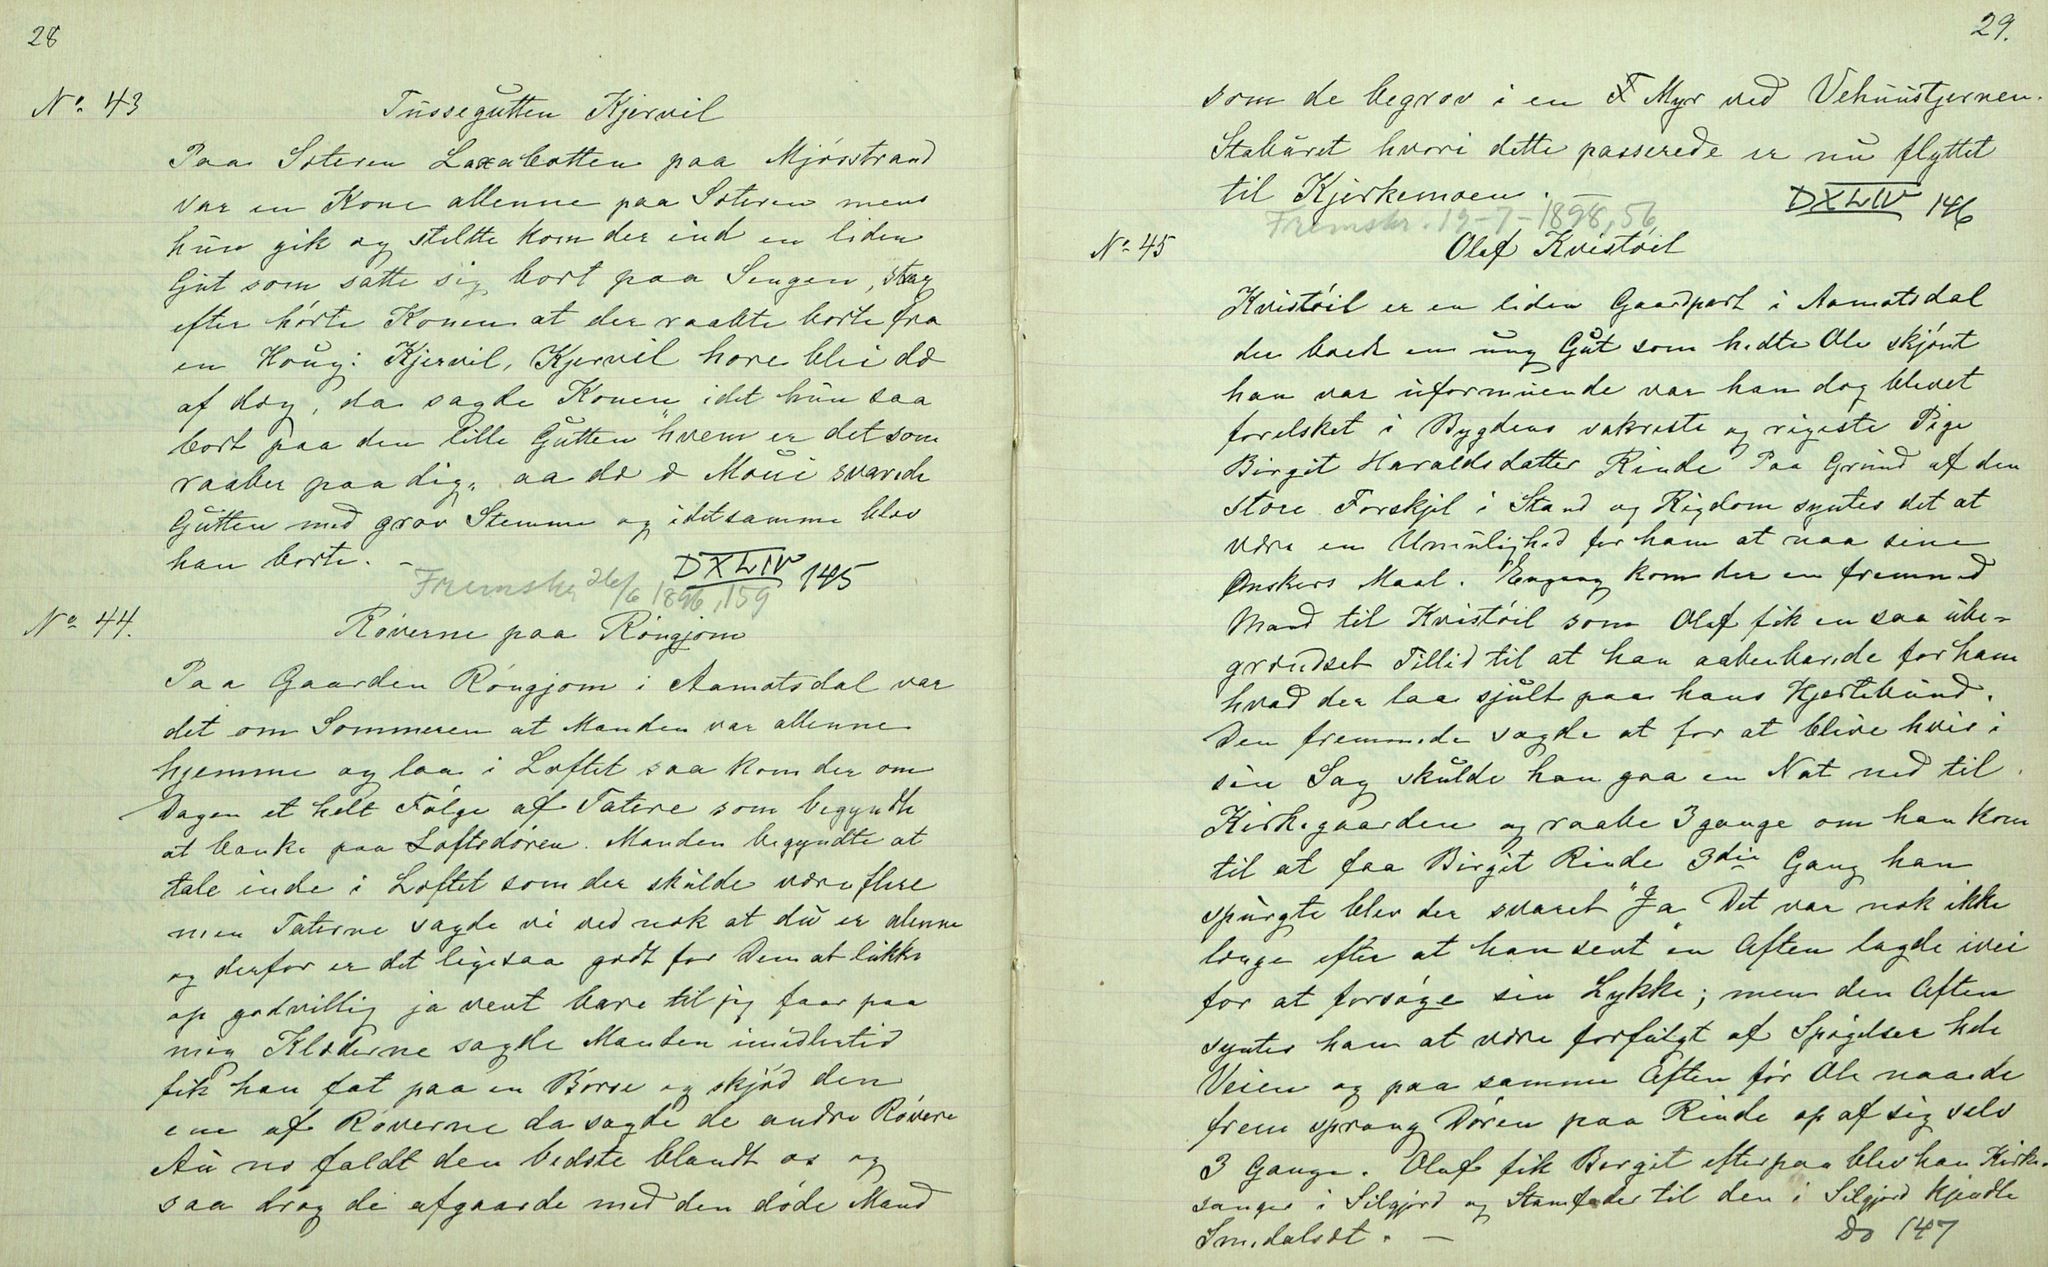 28
No 43
Tussegutten Kjervil
Paa Sæteren Laxabotten paa Mjösstrand
var en Kone allenne paa Sæteren mens
hun gik og stelte kom der ind en liden
Gut som satte sig bort paa Sengen, strag
efter hörte Konen at der raabte borte fra
en Houg: Kjervil, Kjervil hore blei dæ
af dæg, da sagde Konen idet hun saa
bort paa den lille Gutten "hvem er det som
raaber paa dig" aa dæ æ Moui svarede
Gutten med grov Stemme og i det samme blev
han borte. –
DXLIV 145
Fremskr. 26/6 1896, 159
No 44.
Röverne paa Röngjom
Paa Gaarden Röngjom i Aamotsdal var
det om Sommeren at Manden var allenne
hjemme og laa i Loftet saa kom der om
Dagen et helt Fölge af Tatere som begyndte
at banke paa Loftsdören. Manden begyndte at
tale inde i Loftet som der skulde være flere
men Taterne sagde vi ved nok at du er alenne
og derfor er det ligesaa godt for Dem at lukke
op godvillig ja vent bare til jeg faar paa
mig Klæderne sagde Manden imidlertid
fik han fat paa en Börse og skjöd den
ene af Röverne da sagde de andre Rövere
Au no faldt den bedste blandt os og
saa drog de afgaarde med den döde Mand
29.
som de begrov i en Myr ved Vehuustjernen.
Staburet hvori dette passerede er nu flyttet
til Kjerkemoen. –
DXLIV 146
Fremskr. 19-7-1898, 56
No 45
Olaf Kvistöil
Kvistöil er en liden Gaardpart i Aamotsdal
der boede en ung Gut som hedte Ole skjönt
han var uformuende var han dog blevet
forelsket i Bygdens vakreste og rigeste Pige
Birgit Haraldsdatter Rinde Paa Grund af den
store Forskjel i Stand og Rigdom syntes det at
være en Umulighed for ham at naa sine
Ønskers Maal. Engang kom der en fremmed
Mand til Kvistöil som Olaf fik en saa ube-
grændset Tillid til at han aabenbarede for ham
hvad der laa sjult paa hans Hjertebund.
Den fremmede sagde at for at blive vis i
sin Sag skulde han gaa en Nat ned til
Kirkegaarden og raabe 3 gange om han kom
til at faa Birgit Rinde 3die Gang han
spurgte blev der svaret "Ja" Det var nok ikke
længe efter at han sent en Aften lagde ivei
for at forsöge sin Lykke; men den Aften
syntes han at være forfulgt af Spögelser hele
Veien og paa samme Aften för Ole naaede
frem sprang Dören paa Rinde op af sig selv
3 Gange. Olaf fik Bergit efterpaa blev han Kirke-
sanger i Silgjord og Stamfader til den i Silgjord kjendte
Smedalsæt. –
Do 147